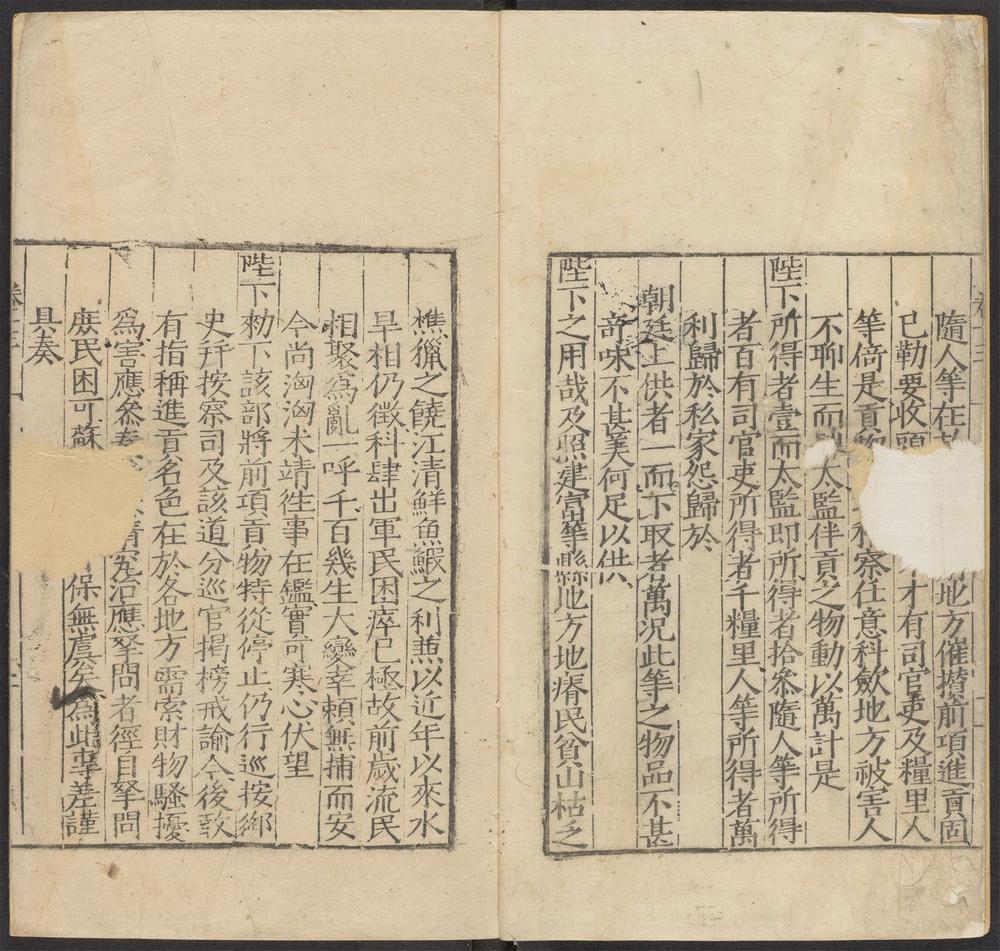 隨人等在於地方催攢前項進貢固
已勒要收頭才有司官吏及糧里人
等倍是貢物科察任意科歛地方被害人
不聊生而太監伴貢之物動以萬計是
陛下所得者壹而太監即所得者拾叅隨人等所得
者百有司官吏所得者千糧里人等所得者萬
利歸於私家怨歸於
朝廷上供者一而下取者萬況此等之物品不甚
竒味不甚美何足以供
陛下之用哉及照建寧等縣地方地瘠民貧山枯乏
樵獵之饒江清鮮魚鰕之利蕪以近年以來水
旱相仍徵科肆出軍民困瘁已極故前歲流民
相聚爲亂一呼千百幾生大變幸賴無捕而安
今尚洶洶未靖徃事在鑑實可寒心伏望
陛下勑下該部將前項貢物特從停止仍行巡按御
史幷按察司及該道分巡官揭榜戒諭今後敢
有指稱進貢名色在於各地方需索財物騷擾
爲害應叅奏請究治應拏問者徑自拏問
庻民困可蘇保無虞矣爲此專差謹
具奏